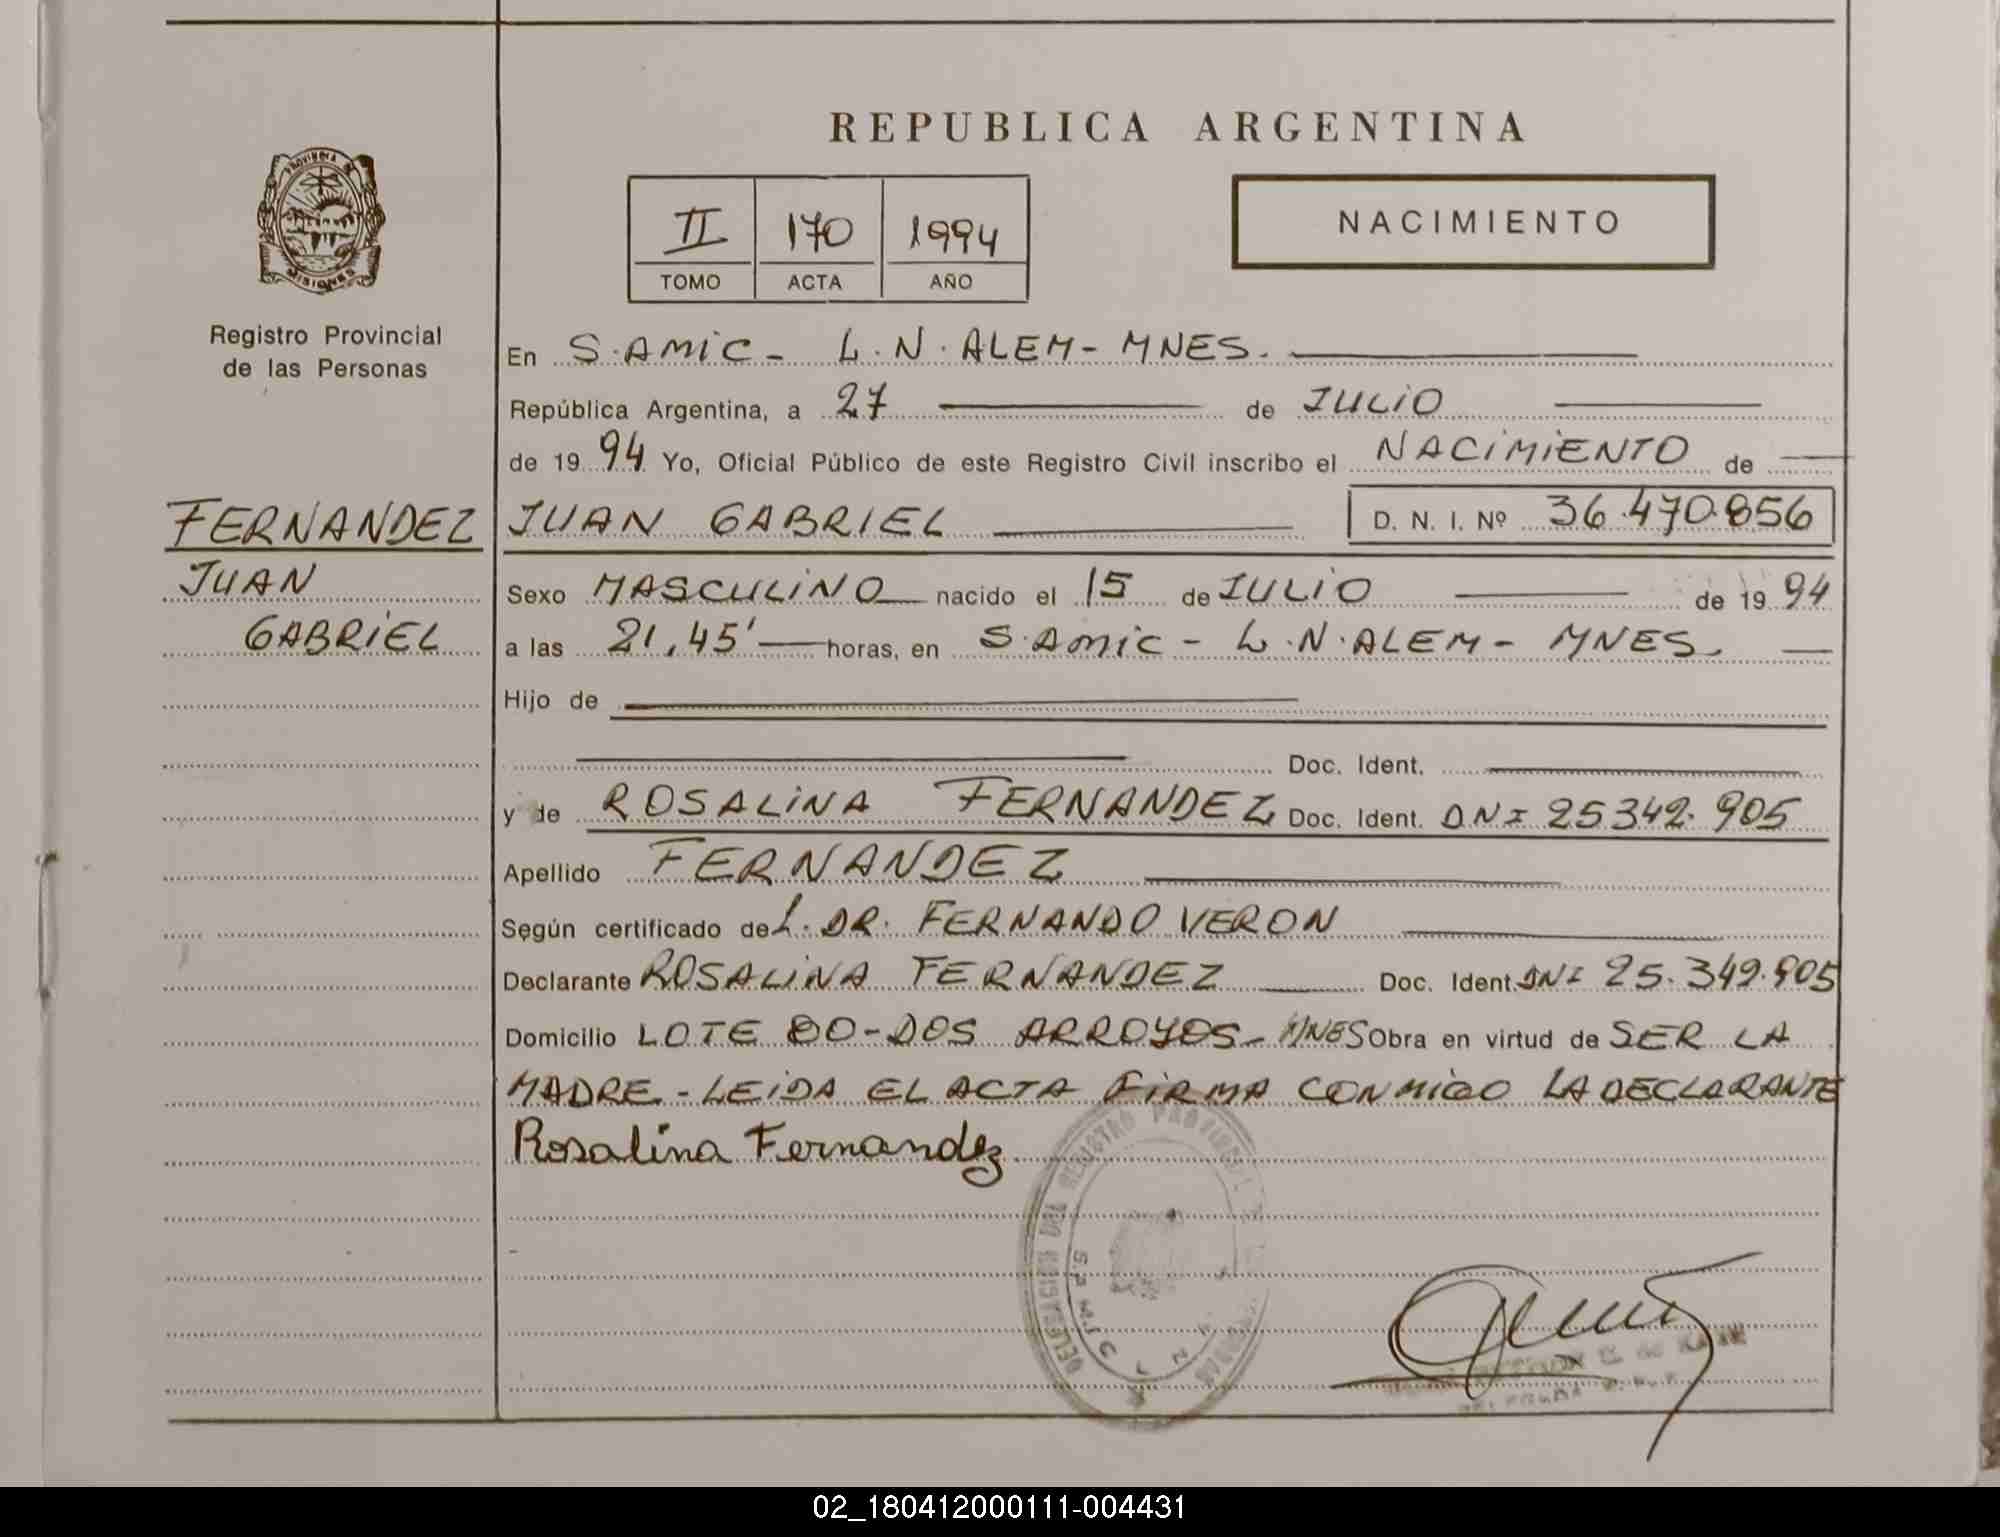 REPUBLICA ARGENTINA
PROVINCIA DE MISIONES
Registro Provincial
de las Personas
II 170 1994
TOMO ACTA AÑO
NACIMIENTO
En S. AMIC - L. N. ALEM - MNES.
República Argentina, a 27 de JULIO
de 1994 Yo, Oficial Público de este Registro Civil inscribo el NACIMIENTO de
FERNANDEZ
JUAN
GABRIEL
JUAN GABRIEL D. N. I. Nº 36.470.856
Sexo MASCULINO nacido el 15 de JULIO de 1994
a las 21,45' horas, en S. AMIC - L. N. ALEM - MNES.
Hijo de
Doc. Ident.
y de ROSALINA FERNANDEZ Doc. Ident. DNI 25342.905
Apellido FERNANDEZ
Según certificado de L. DR. FERNANDO VERON
Declarante ROSALINA FERNANDEZ Doc. Ident. DNI 25.349.905
Domicilio LOTE 80 - DOS ARROYOS - MNES Obra en virtud de SER LA
MADRE - LEIDA EL ACTA FIRMA CONMIGO LA DECLARANTE
Rosalina Fernandez
DELEGACION DEL REGISTRO PROVINCIAL DE
02_180412000111-004431